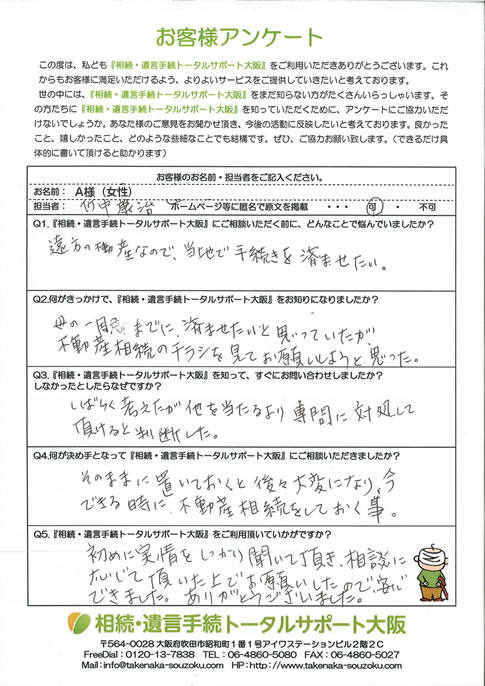 お客様アンケート
この度は、私ども『相続・遺言手続トータルサポート大阪』をご利用いただきありがとうございます。これ
からもお客様に満足いただけるよう、よりよいサービスをご提供していきたいと考えております。
世の中には、『相続・遺言手続トータルサポート大阪』をまだ知らない方がたくさんいらっしゃいます。そ
の方たちに『相続・遺言手続トータルサポート大阪』を知っていただくために、アンケートにご協力いただ
けないでしょうか。あなた様のご意見をお聞かせ頂き、今後の活動に反映したいと考えております。良かった
こと、嬉しかったこと、どのような些細なことでも結構です。ぜひ、ご協力お願い致します。（できるだけ具
体的に書いて頂けると助かります）
お客様のお名前・担当者をご記入ください。
お名前： A様（女性）
担当者： 竹中 厳治 ホームページ等に匿名で原文を掲載 ・・・ 可 ・ 不可
Q1.『相続・遺言手続トータルサポート大阪』にご相談いただく前に、どんなことで悩んでいましたか？
遠方の不動産なので、当地で手続きを済ませたい。
Q2.何がきっかけで、『相続・遺言手続トータルサポート大阪』をお知りになりましたか？
母の一周忌までに、済ませたいと思っていたが
不動産相続のチラシを見てお願いしようと思った。
Q3.『相続・遺言手続トータルサポート大阪』を知って、すぐにお問い合わせしましたか？
しなかったとしたらなぜですか？
しばらく考えたが他を当たるより専門に対処して
頂けると判断した。
Q4.何が決め手となって『相続・遺言手続トータルサポート大阪』にご相談いただきましたか？
そのままに置いておくと後々大変になり、今
できる時に、不動産相続をしておく事。
Q5.『相続・遺言手続トータルサポート大阪』をご利用頂いていかがですか？
初めに実情をしっかり聞いて頂き、相談に
応じて頂いた上でお願いしたので、安心
できました。ありがとうございました。
相続・遺言手続トータルサポート大阪
〒564-0028 大阪府吹田市昭和町1番1号アイワステーションビル2階2C
FreeDial：0120-13-7838 TEL：06-4860-5080 FAX：06-4860-5027
Mail：info@takenaka-souzoku.com HP：http://www.takenaka-souzoku.com/